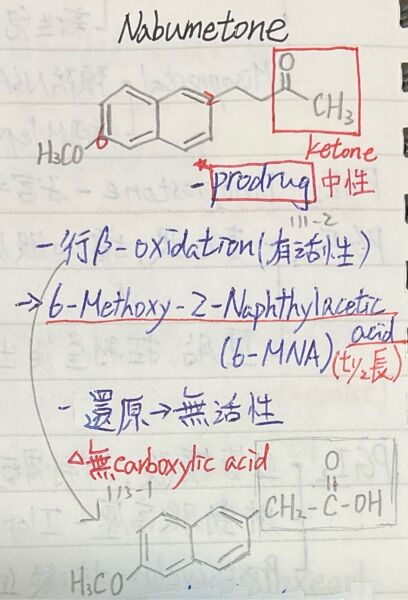 Nabumetone
O
CH3
2
6
H3CO
ketone
*
- prodrug 中性
111-2
- 行β-oxidation(有活性)
→ 6-Methoxy-2-Naphthylacetic
acid
(6-MNA) (t1/2長)
- 還原→無活性
△無carboxylic acid
113-1
O
CH2-C-OH
H3CO